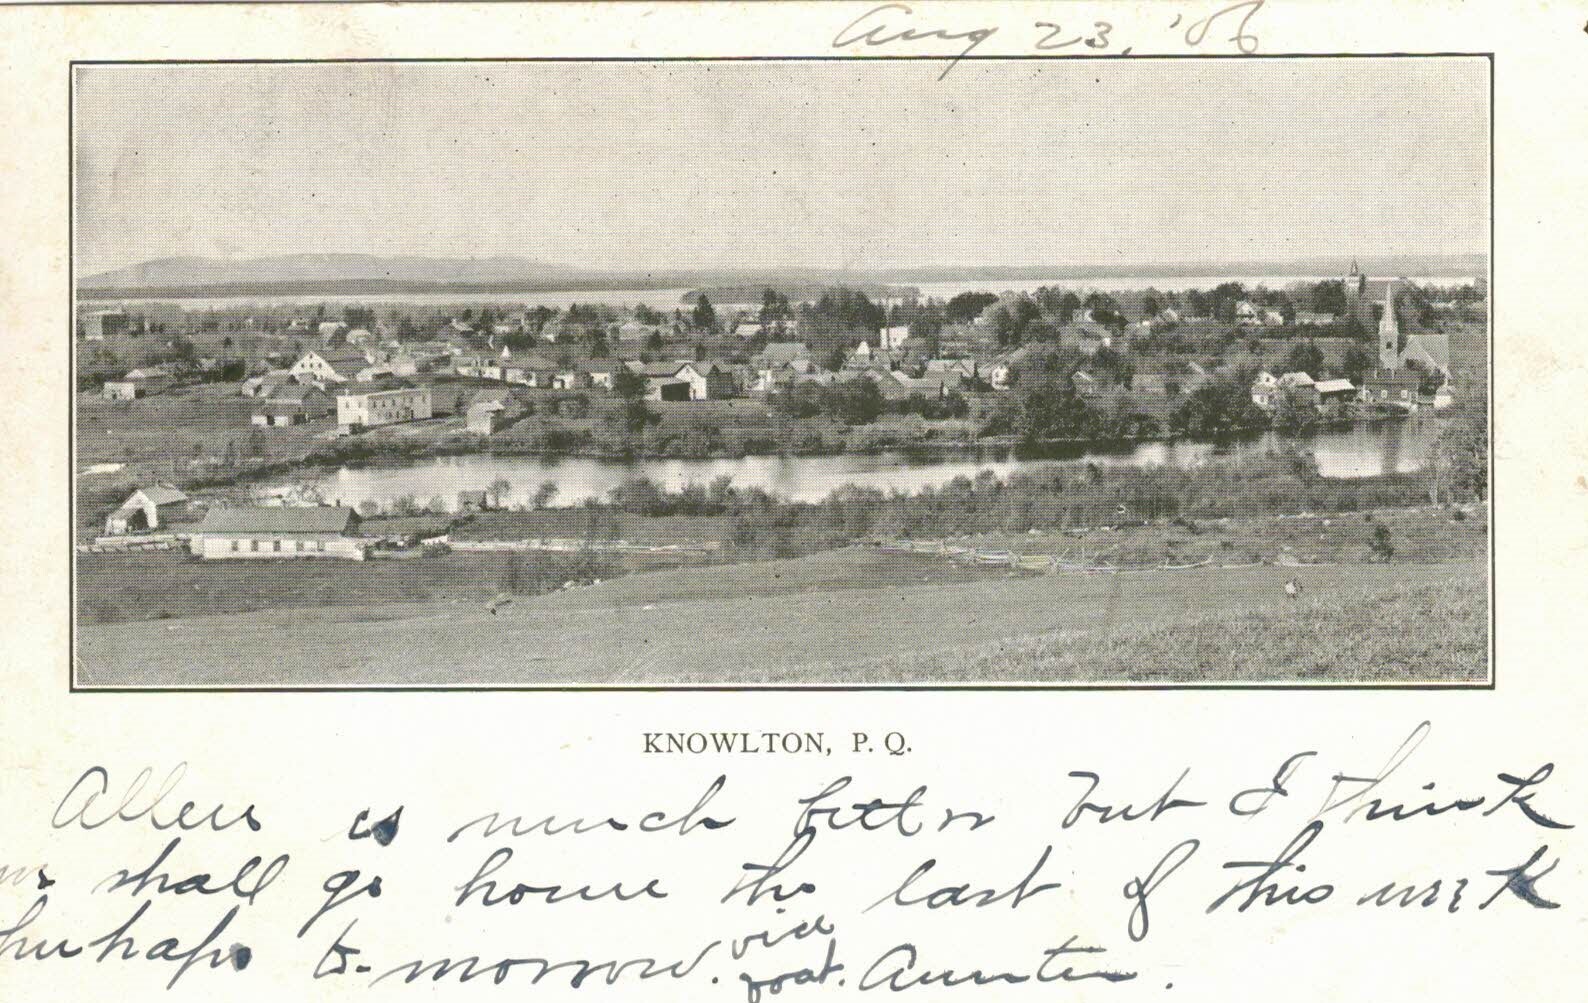 Aug 23, '06
KNOWLTON, P. Q.
Allen is much better but I think
we shall go home the last of this week
perhaps to-morrow. Auntie.